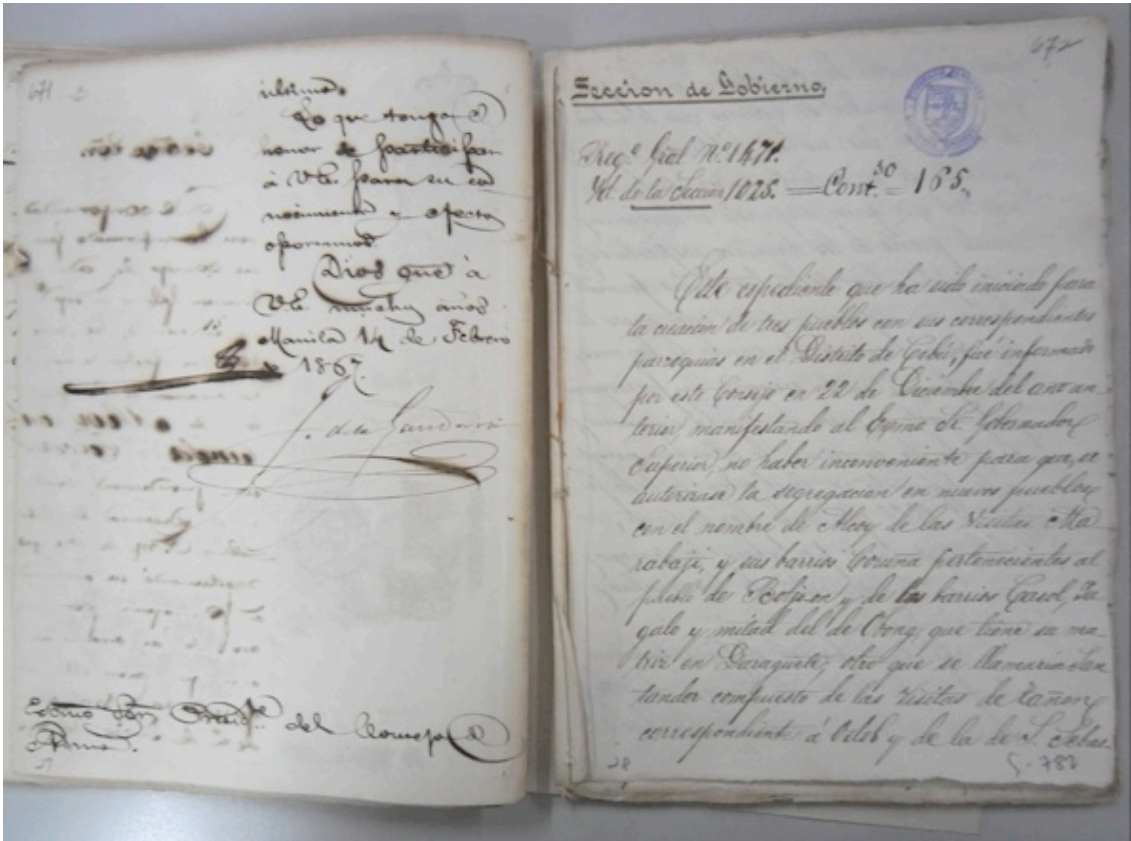 671
informado
Lo que tengo el
honor de participar
á V.E. para su co
nocimiento y efectos
oportunos.
Dios gue á
V.E. muchos años
Manila 14 de Febrero
1867.
Exmo Sor Presid.te del Consejo de
672
Seccion de Gobierno.
Reg.o Gral N.o 1471.
Yd. de la Seccion 1025. = Cont.so = 165.
Este espediente que ha sido iniciado para
la creacion de tres pueblos con sus correspondientes
parroquias en el Distrito de Cebú, fué informado
por este Consejo en 22 de Diciembre del año an-
terior, manifestando al Exmo Sr. Gobernador
Superior, no haber inconveniente para que, se
autorizase la segregacion en nuevos pueblos
con el nombre de Alcoy de las Visitas Ma
rabaji, y sus barrios Coruña pertenecientes al
pueblo de Boljoon y de los barrios Casol, Ta
galo y mitad del de Obong, que tiene su ma-
triz en Daraguete, otro que se llamaria San-
tander compuesto de las visitas de Tañon
correspondiente á Oslob y de la de S. Sebas
28